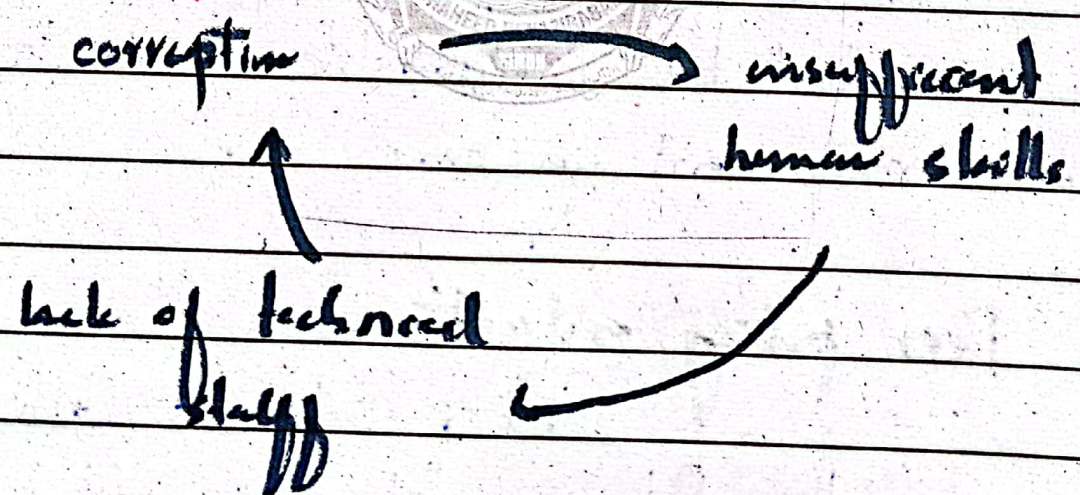 corruption
insufficient
human skills
lack of technical
staff